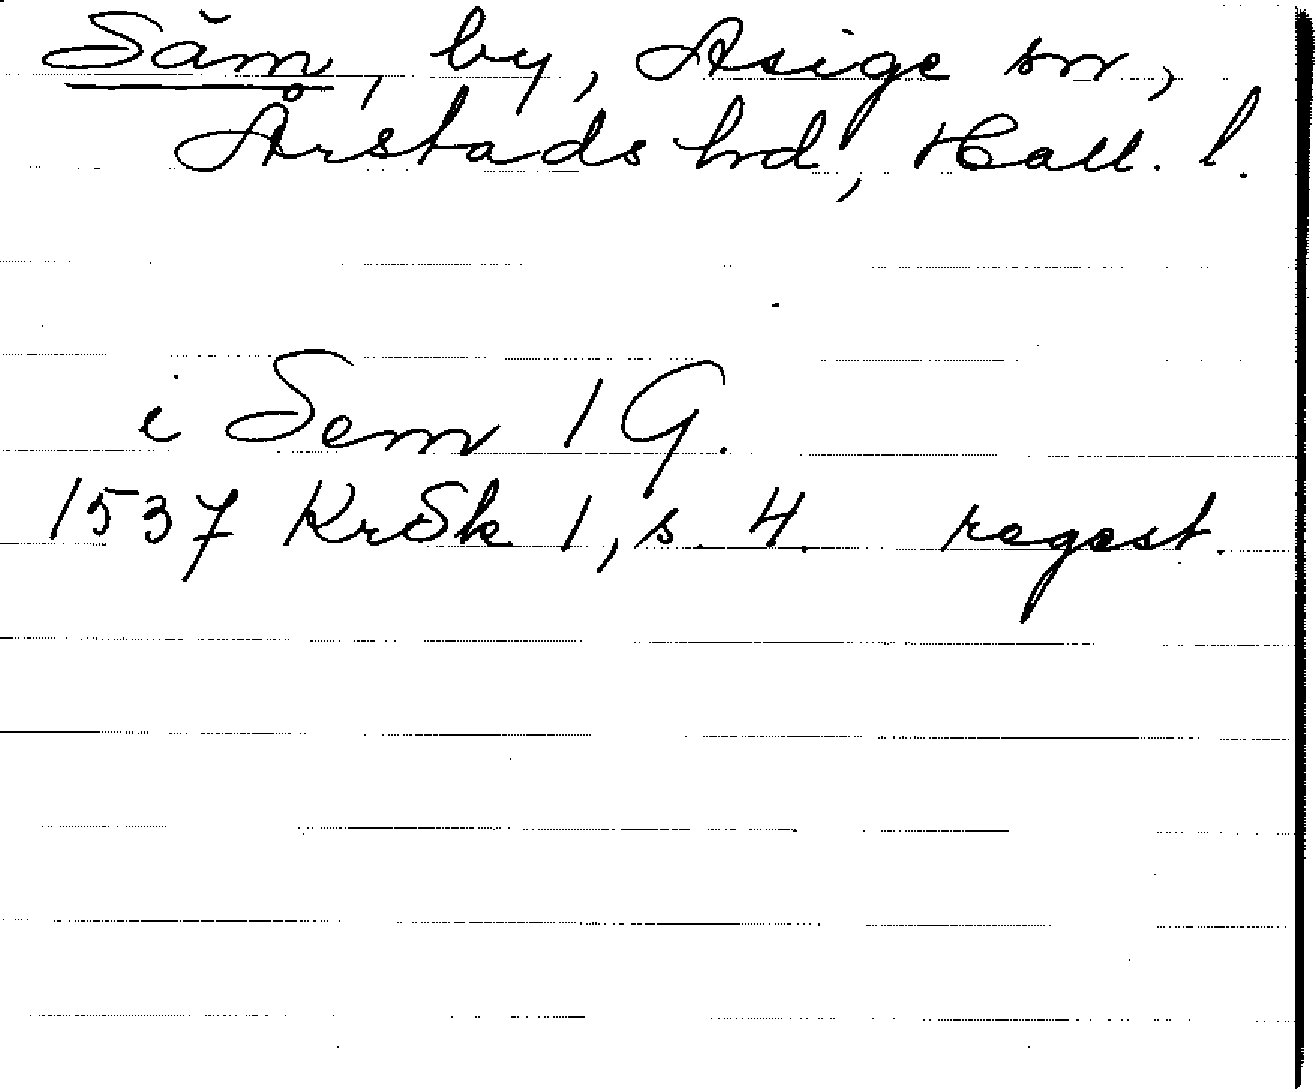 Säm, by, Asige sn,
Årstads hd, Hall. l.
i Sem 1 G.
1537 KrSk 1, s. 4. regest.